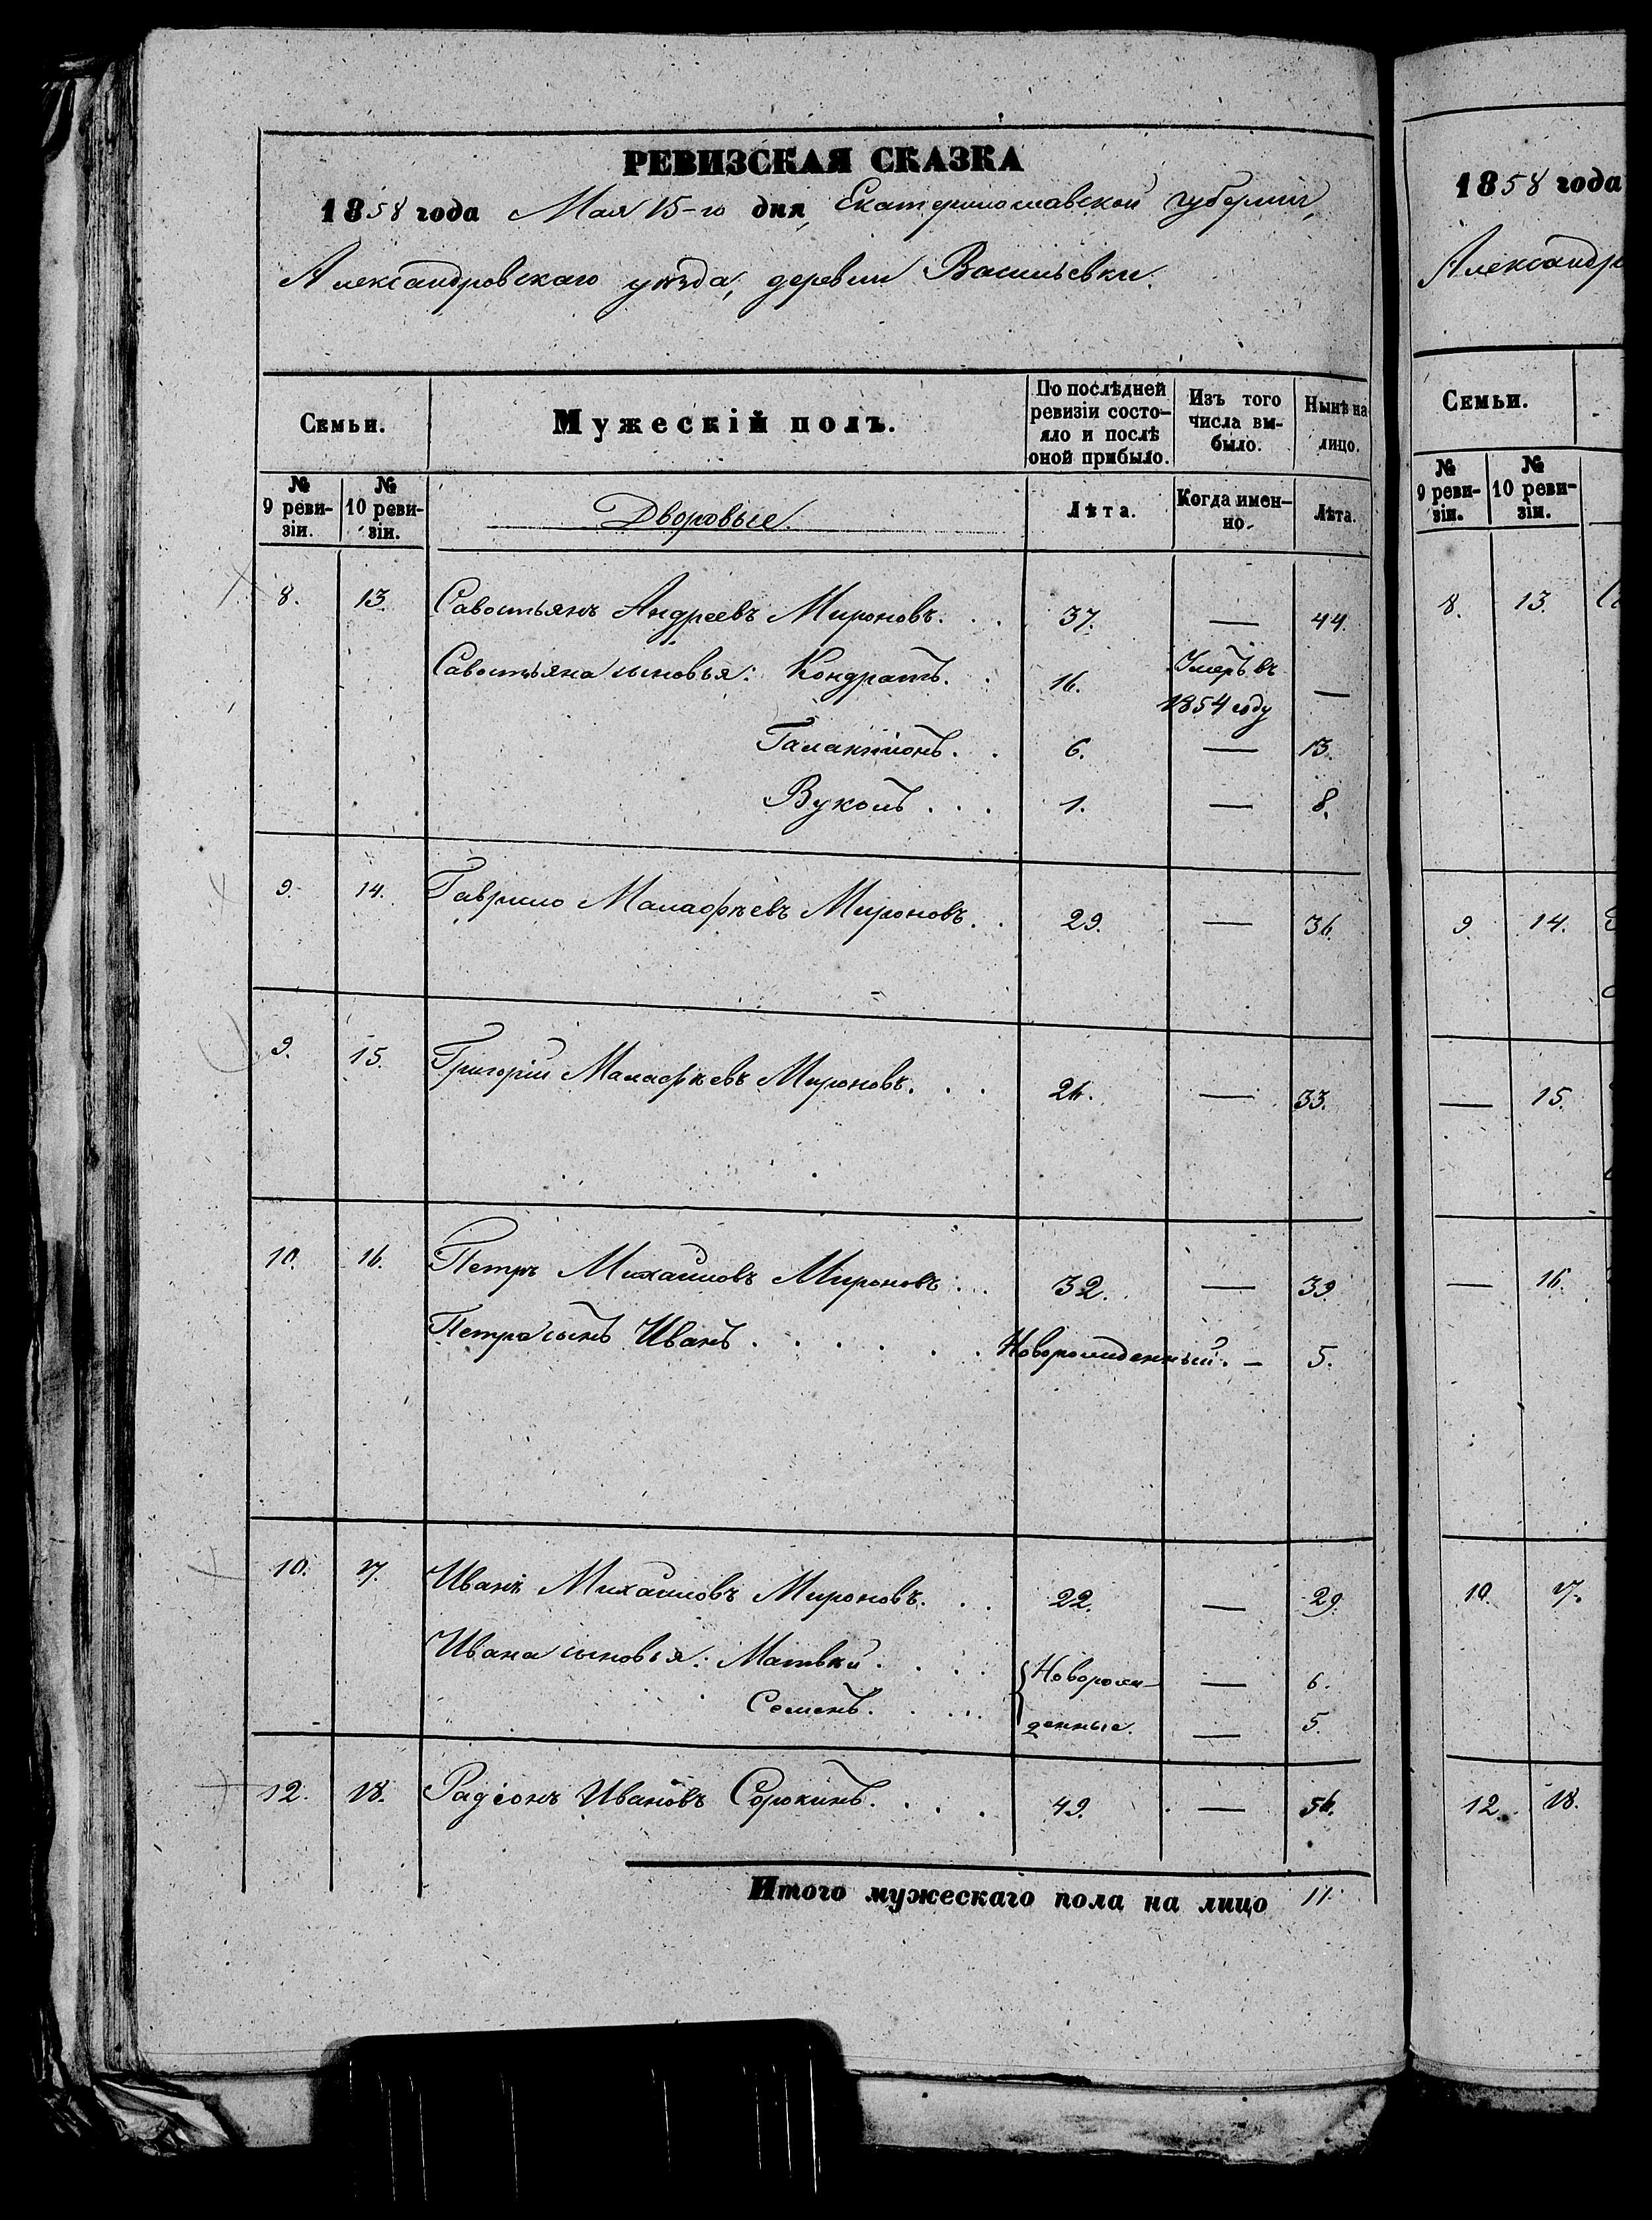 РЕВИЗСКАЯ СКАЗКА
1858 года Мая 15-го дня, Екатеринославской губернии,
Александровскаго уѣзда, деревни Васильевки.
Семьи.
Мужескій полъ.
По послѣдней ревизіи состо-
яло и послѣ оной прибыло.
Изъ того числа вы-
было.
Нынѣ на лицо.
№ 9 реви-
зіи.
№ 10 реви-
зіи.
Дворовые.
Лѣта.
Когда имен-
но.
Лѣта.
8. 13. Савостьянъ Андреевъ Мироновъ. . . 37. — 44.
Савостьяна сыновья: Кондратъ. . 16. Умеръ въ 1854 году —
Галактіонъ. . 6. — 13.
Вуколъ . . . 1. — 8.
9. 14. Гаврило Малафѣевъ Мироновъ. . 29. — 36.
9. 15. Григорій Малафѣевъ Мироновъ. . . 26. — 33.
10. 16. Петръ Михаиловъ Мироновъ . . . 32. — 39.
Петра сынъ Иванъ . . . . . . Новорожденный. — 5.
10. 17. Иванъ Михаиловъ Мироновъ. . . 22. — 29.
Ивана сыновья: Матвѣй . . . . { Новорож- — 6.
Семенъ. . . . . денные. — 5.
12. 18. Радіонъ Ивановъ Сорокинъ. . . . 49. — 56.
Итого мужескаго пола на лицо 11.
1858 года
Александр
Семьи.
№ 9 реви-
зіи.
№ 10 реви-
зіи.
8. 13.
9. 14.
— 15.
— 16.
10. 17.
12. 18.